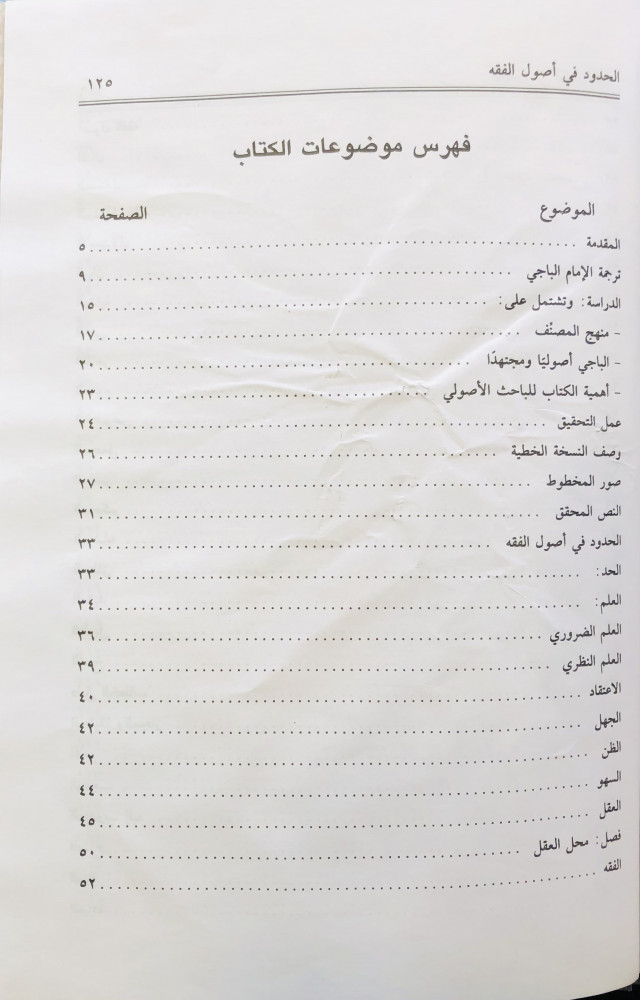 الحدود في أصول الفقه ١٢٥
فهرس موضوعات الكتاب
الموضوع الصفحة
المقدمة ٥
ترجمة الإمام الباجي ٩
الدراسة: وتشتمل على: ١٥
- منهج المصنّف ١٧
- الباجي أصوليًا ومجتهدًا ٢٠
- أهمية الكتاب للباحث الأصولي ٢٣
عمل التحقيق ٢٤
وصف النسخة الخطية ٢٦
صور المخطوط ٢٧
النص المحقق ٣١
الحدود في أصول الفقه ٣٣
الحد: ٣٣
العلم: ٣٤
العلم الضروري ٣٦
العلم النظري ٣٩
الاعتقاد ٤٠
الجهل ٤٢
الظن ٤٢
السهو ٤٤
العقل ٤٥
فصل: محل العقل ٥٠
الفقه ٥٢